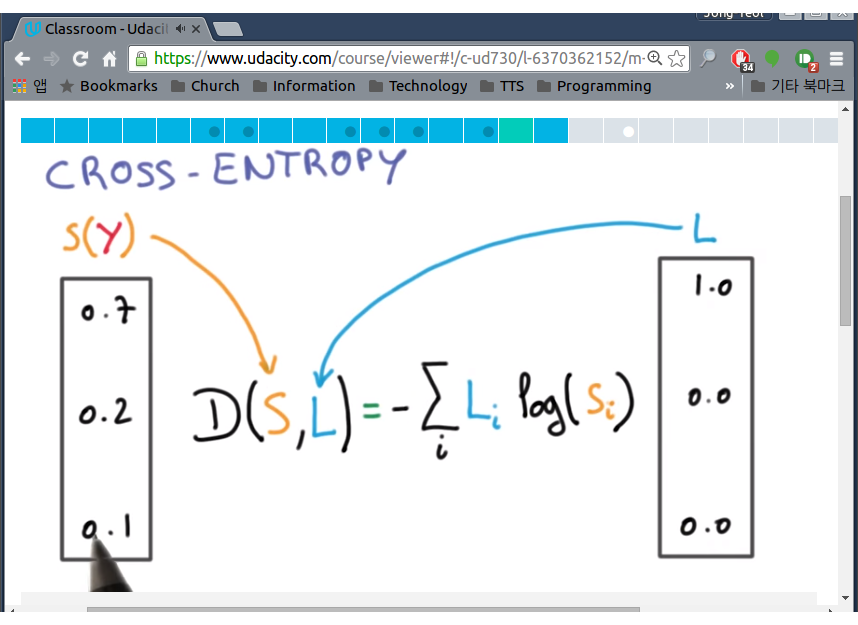 Jong Yeol
Classroom - Udacit
https://www.udacity.com/course/viewer#!/c-ud730/l-6370362152/m-
34
2
앱 Bookmarks Church Information Technology TTS Programming » 기타 북마크
CROSS-ENTROPY
S(Y) L
0.7 1.0
D(S,L) = -∑i Li log(Si)
0.2 0.0
0.1 0.0